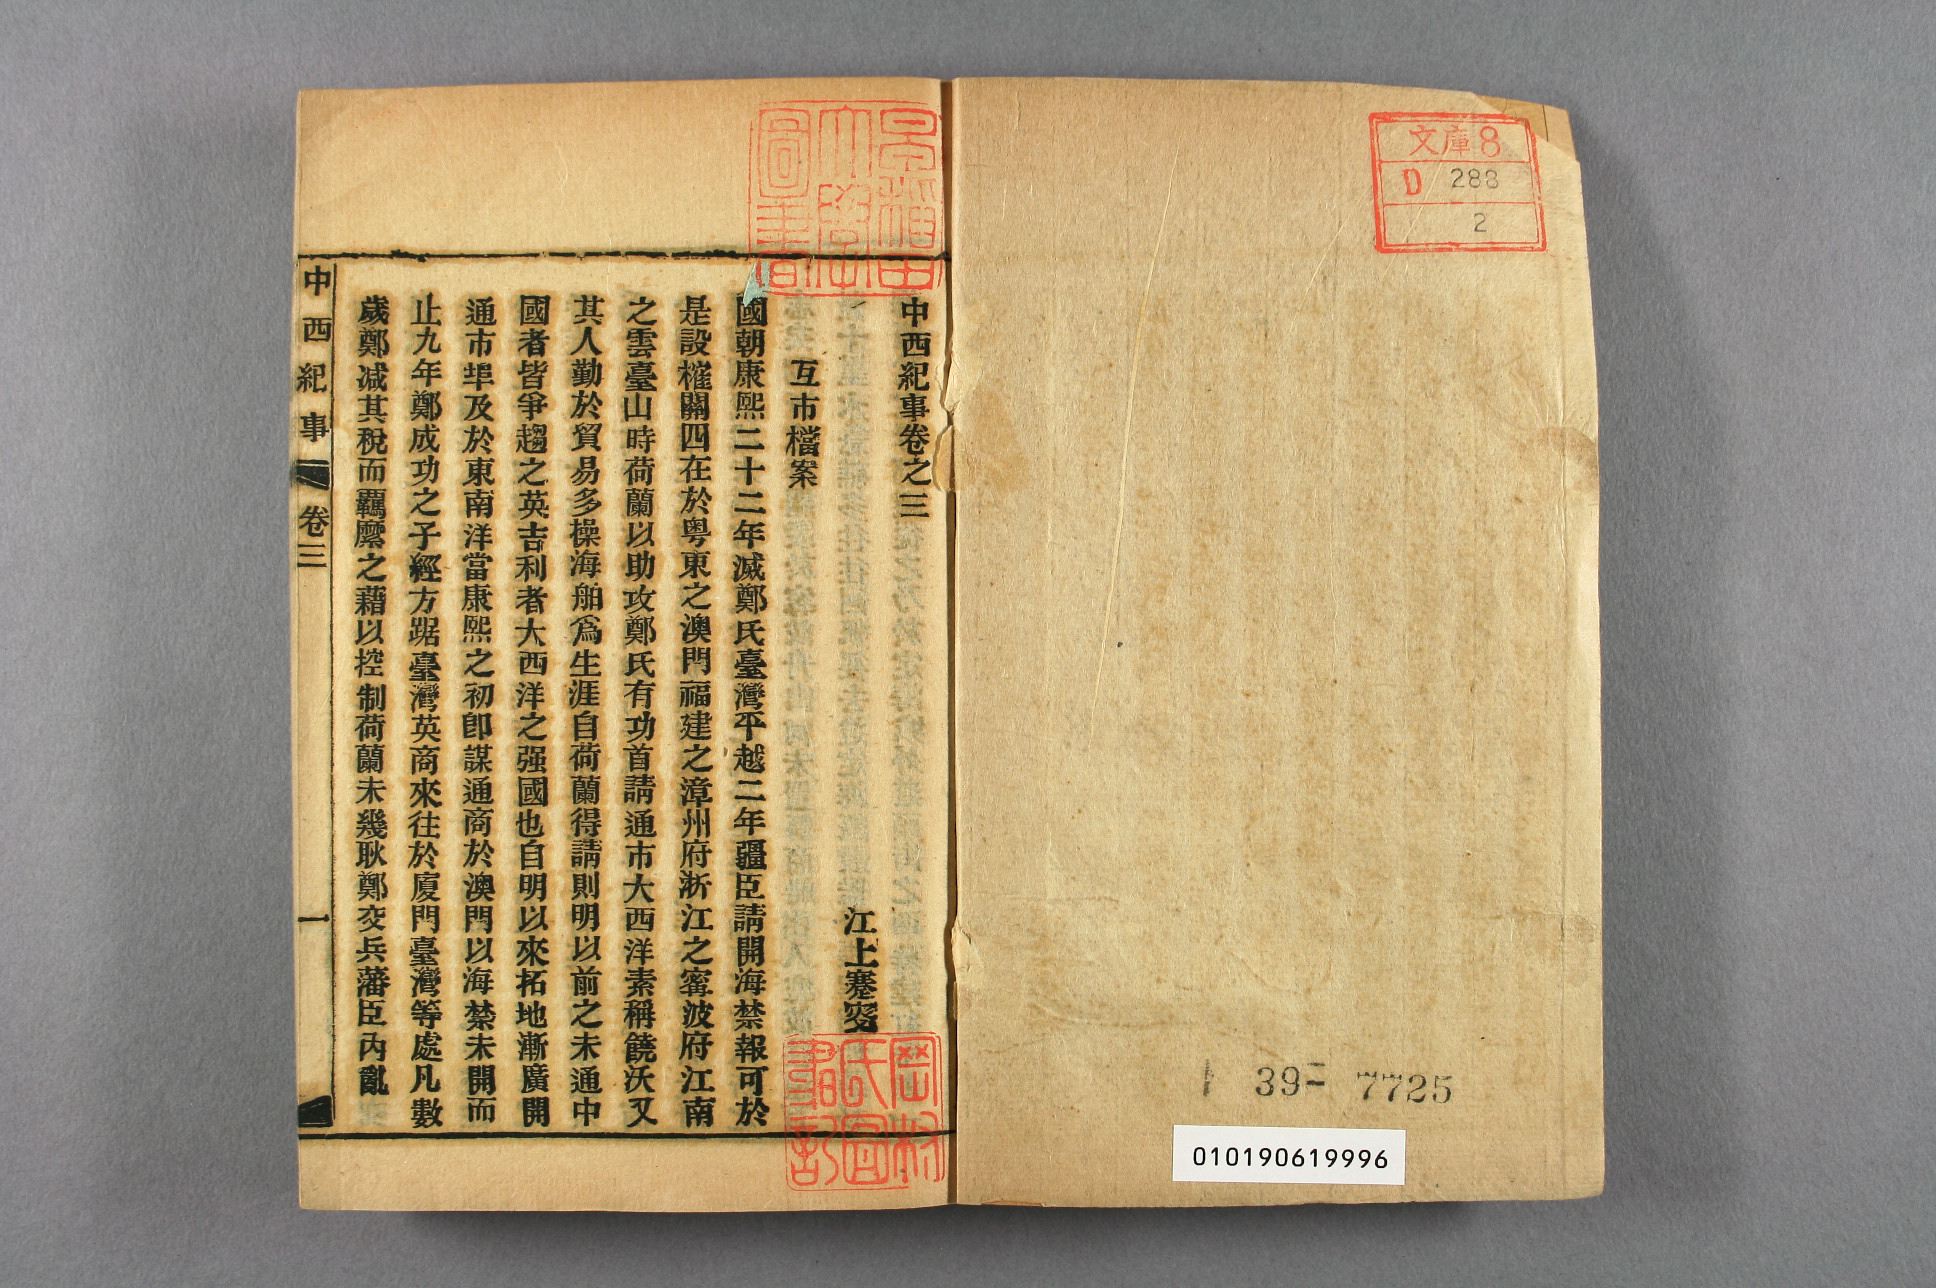 文庫8
D 288
2
39-7725
010190619996
早稲田大學圖書
中西紀事卷之三
江上蹇叟
互市檔案
國朝康熙二十二年滅鄭氏臺灣平越二年疆臣請開海禁報可於
是設榷關四在於粤東之澳門福建之漳州府浙江之寧波府江南
之雲臺山時荷蘭以助攻鄭氏有功首請通市大西洋素稱饒沃又
其人勤於貿易多操海舶爲生涯自荷蘭得請則明以前之未通中
國者皆爭趨之英吉利者大西洋之强國也自明以來拓地漸廣開
通市埠及於東南洋當康熙之初卽謀通商於澳門以海禁未開而
止九年鄭成功之子經方踞臺灣英商來往於廈門臺灣等處凡數
歲鄭減其稅而羈縻之藉以控制荷蘭未幾耿鄭交兵藩臣内亂
中西紀事 卷三 一